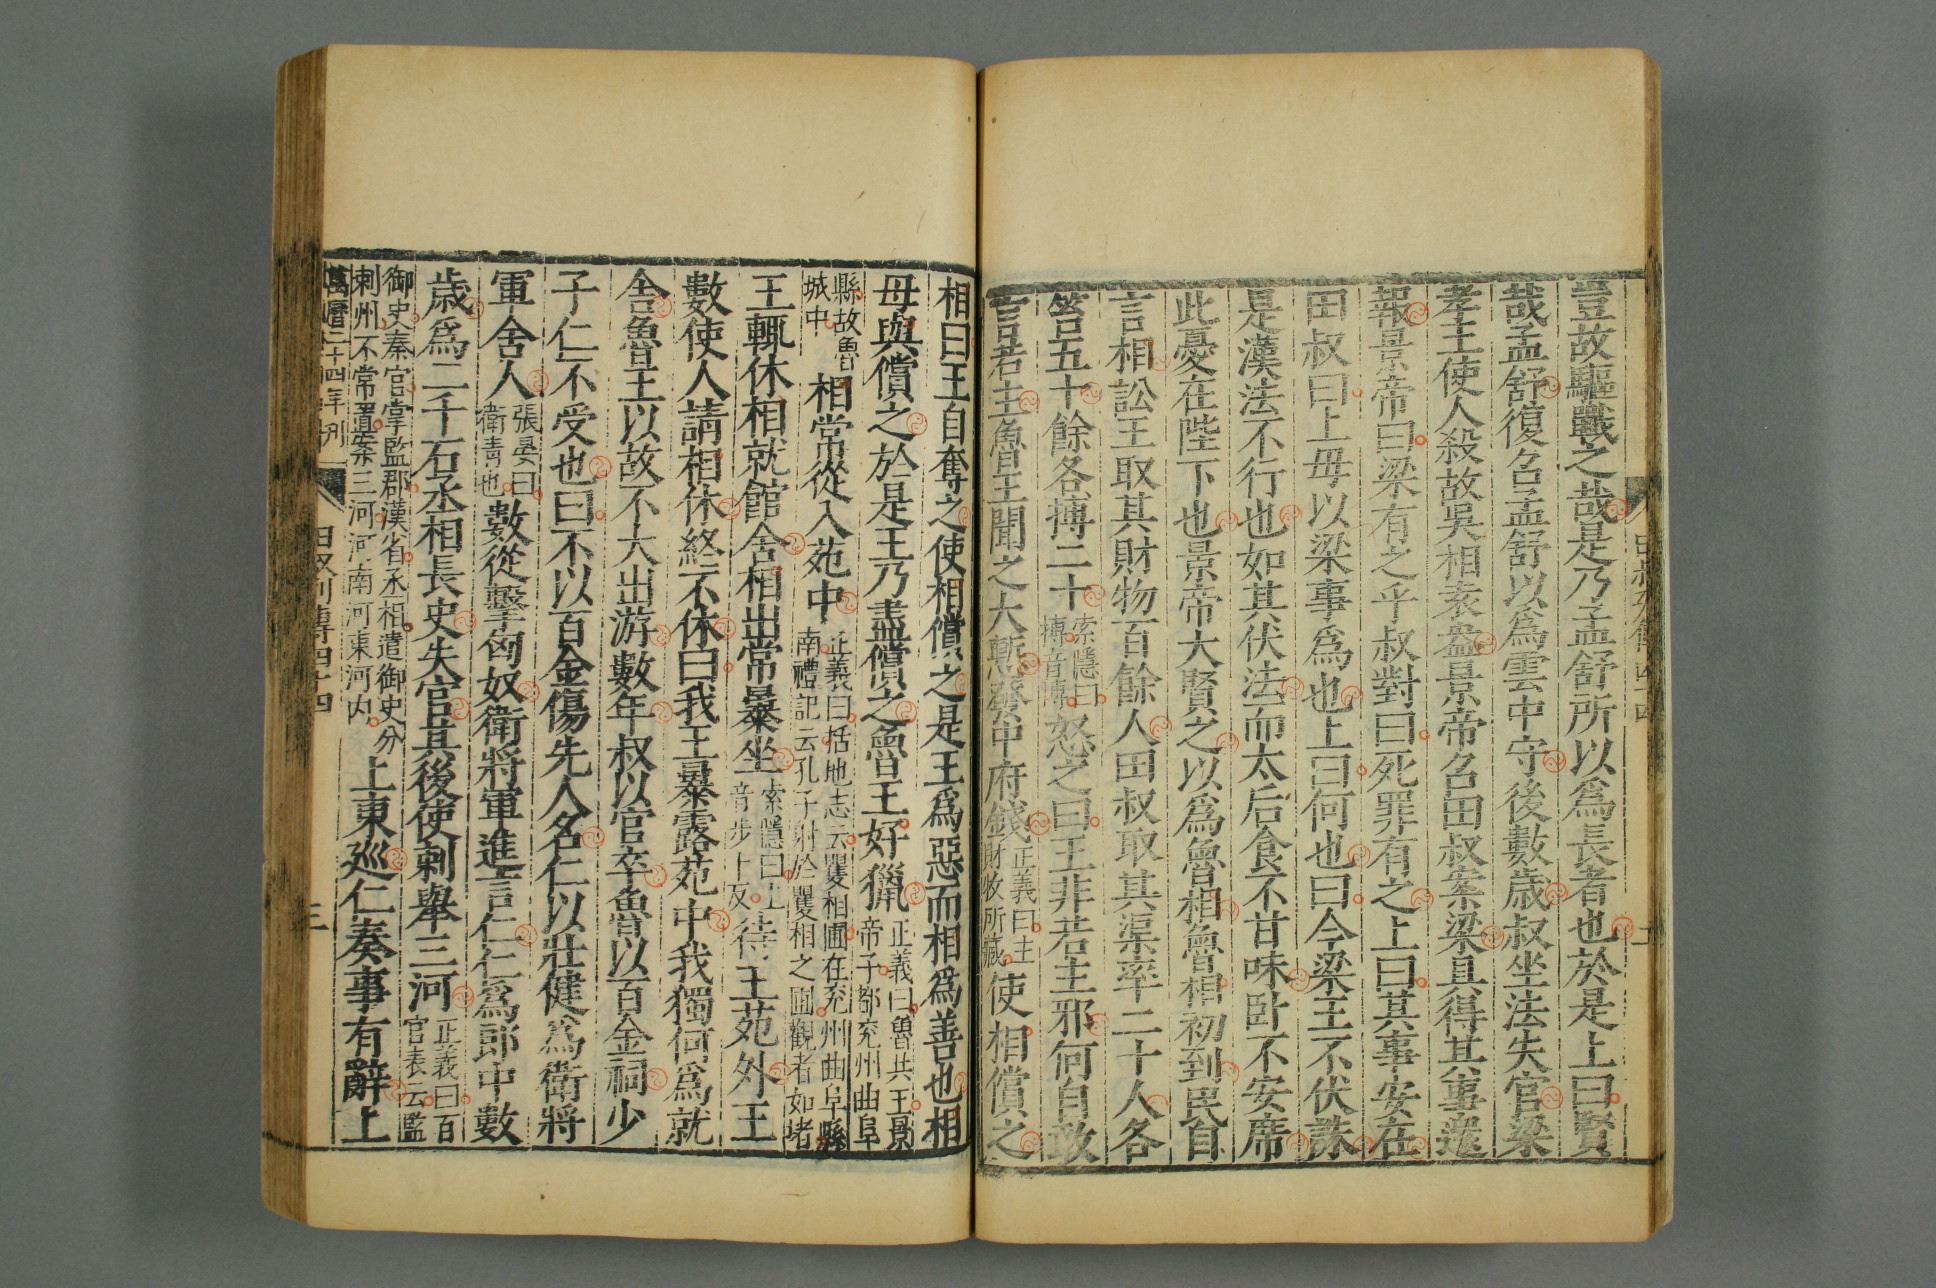 豈故驅戰之哉是乃孟舒所以爲長者也於是上曰賢
哉孟舒復召孟舒以爲雲中守後數歲叔坐法失官梁
孝王使人殺故吳相袁盎景帝召田叔案梁具得其事還
報景帝曰梁有之乎叔對曰死罪有之上曰其事安在
田叔曰上毋以梁事爲也上曰何也曰今梁王不伏誅
是漢法不行也如其伏法而太后食不甘味卧不安席
此憂在陛下也景帝大賢之以爲魯相魯相初到民自
言相訟王取其財物百餘人田叔取其渠率二十人各
笞五十餘各搏二十索隱曰搏音博怒之曰王非若主邪何自敢
言若主魯王聞之大慙發中府錢正義曰王財物所藏使相償之
相曰王自奪之使相償之是王爲惡而相爲善也相
毋與償之於是王乃盡償之魯王好獵正義曰魯共王景帝子都兖州曲阜
縣故魯城中相常從入苑中正義曰括地志云矍相圃在兖州曲阜縣南禮記云孔子射於矍相之圃觀者如堵
王輒休相就館舍相出常暴坐索隱曰上音步卜反待王苑外王
數使人請相休終不休曰我王暴露苑中我獨何爲就
舍魯王以故不大出游數年叔以官卒魯以百金祠少
子仁不受也曰不以百金傷先人名仁以壯健爲衛將
軍舍人張晏曰衛青也數從擊匈奴衛將軍進言仁仁爲郎中數
歲爲二千石丞相長史失官其後使刺舉三河正義曰百官表云監
御史秦官掌監郡漢省丞相遣御史分刺州不常置案三河河南河東河内上東巡仁奏事有辭上
萬曆二十四年刊
田叔列傳四十四
三